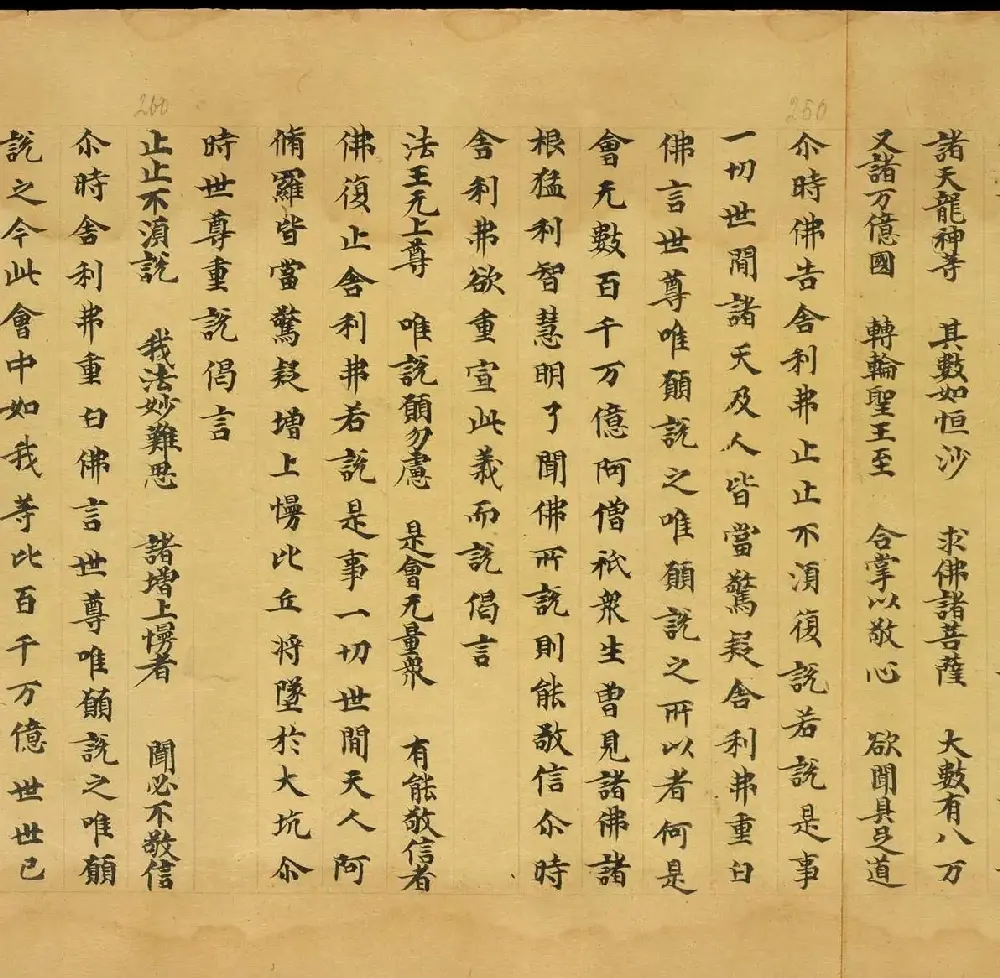 諸天龍神等　其數如恒沙　求佛諸菩薩　大數有八万
又諸万億國　轉輪聖王至　合掌以敬心　欲聞具足道
尒時佛告舍利弗止止不湏復說若說是事
一切世間諸天及人皆當驚疑舍利弗重白
佛言世尊唯願說之唯願說之所以者何是
會无數百千万億阿僧祇衆生曾見諸佛諸
根猛利智慧明了聞佛所說則能敬信尒時
舍利弗欲重宣此義而說偈言
法王无上尊　唯說願勿慮　是會无量衆　有能敬信者
佛復止舍利弗若說是事一切世間天人阿
脩羅皆當驚疑增上慢比丘將墜於大坑尒
時世尊重說偈言
止止不湏說　我法妙難思　諸增上慢者　聞必不敬信
尒時舍利弗重白佛言世尊唯願說之唯願
說之今此會中如我等比百千万億世世已
250
260